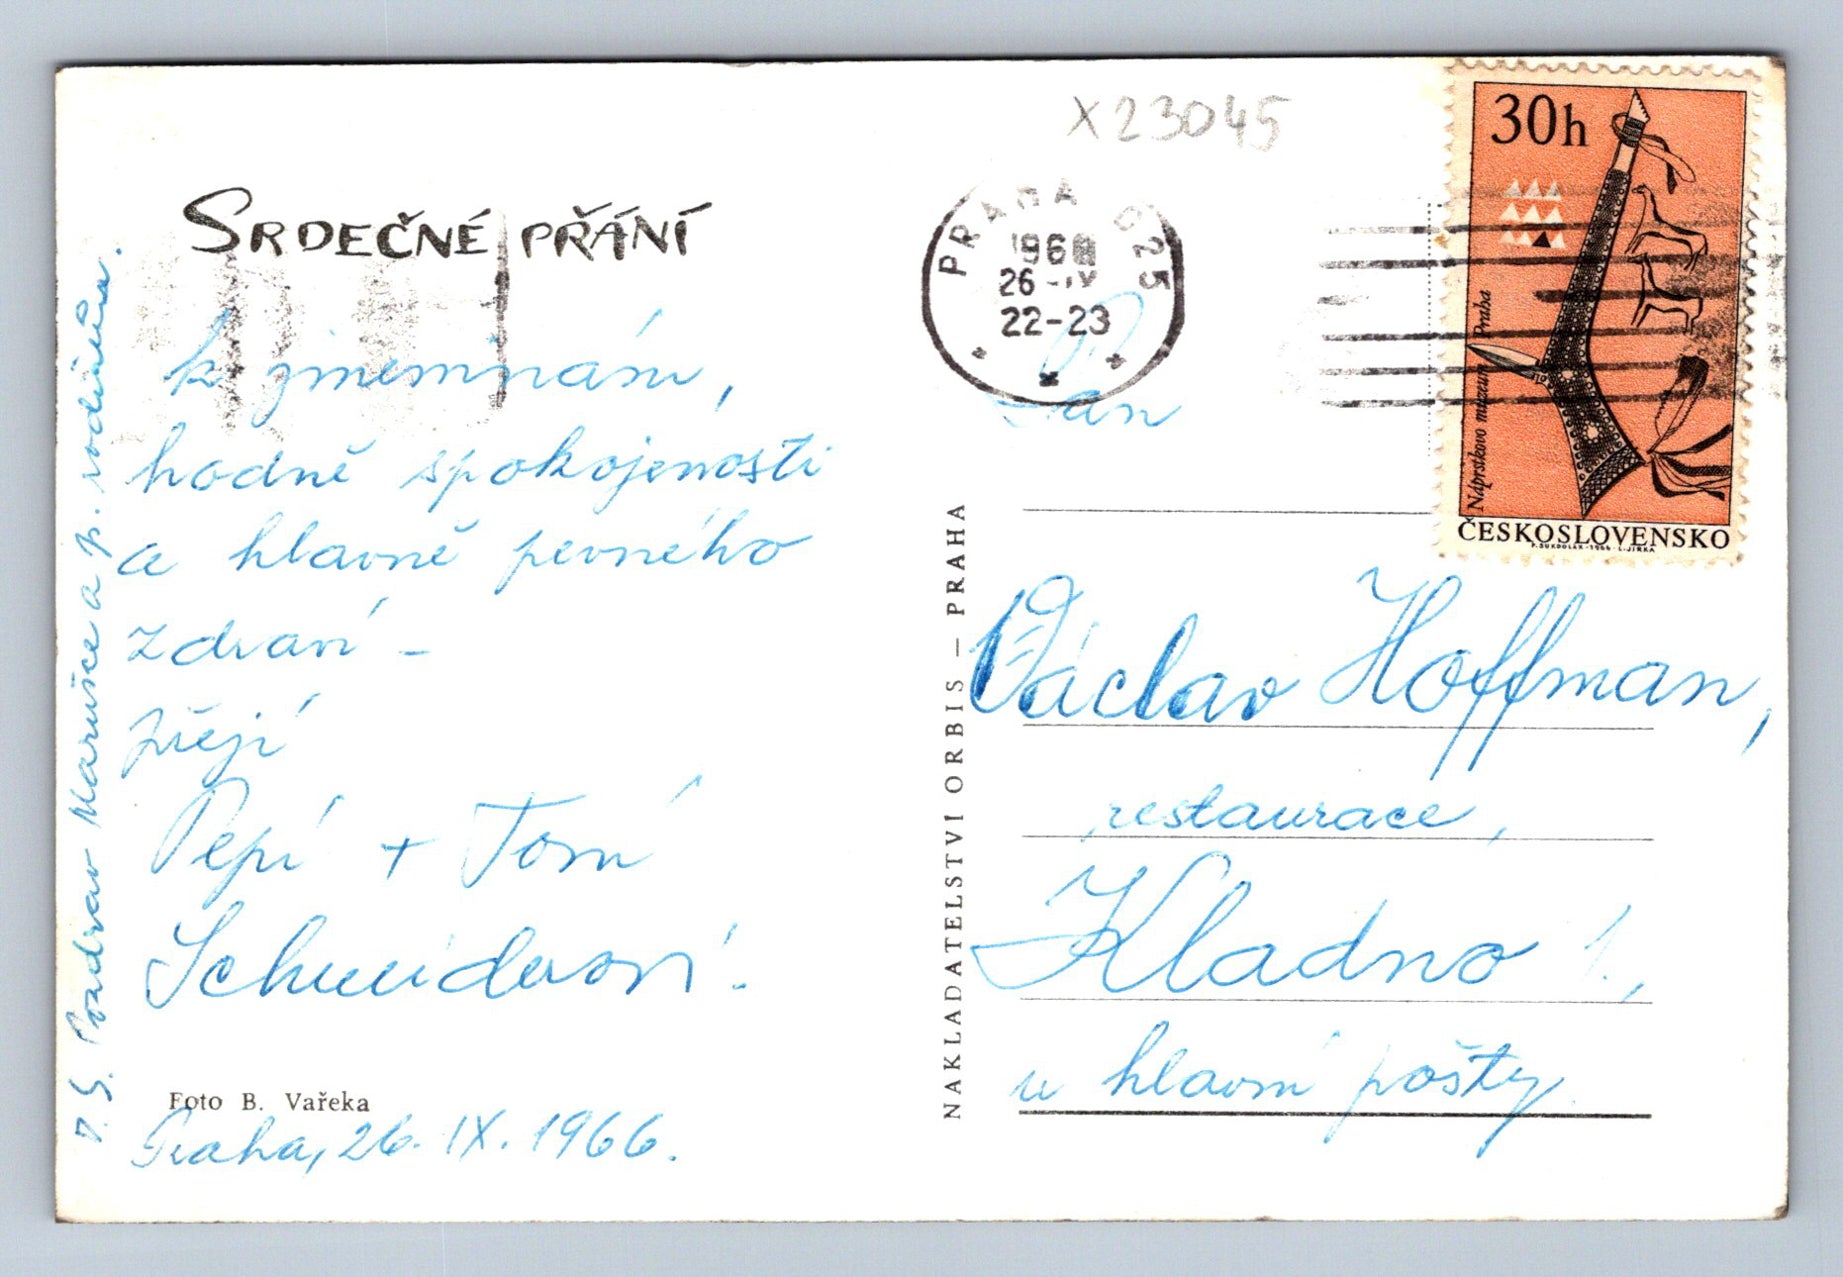 X23045
SRDEČNÉ PŘÁNÍ
k jmeninám,
hodně spokojenosti
a hlavně pevného
zdraví -
přejí
Pepi + Tom
Schneiderovi.
Foto B. Vařeka
Praha, 26. IX. 1966.
P. S. Pozdrav Marušce a p. rodičům.
NAKLADATELSTVÍ ORBIS — PRAHA
PRAHA 025
196
26 -IX
22-23
30h
Náprstkovo muzeum Praha
ČESKOSLOVENSKO
F. SUKDOLÁK - 1966 - L. JIRKA
Pan
Václav Hoffman,
restaurace,
Kladno 1.,
u hlavní pošty.